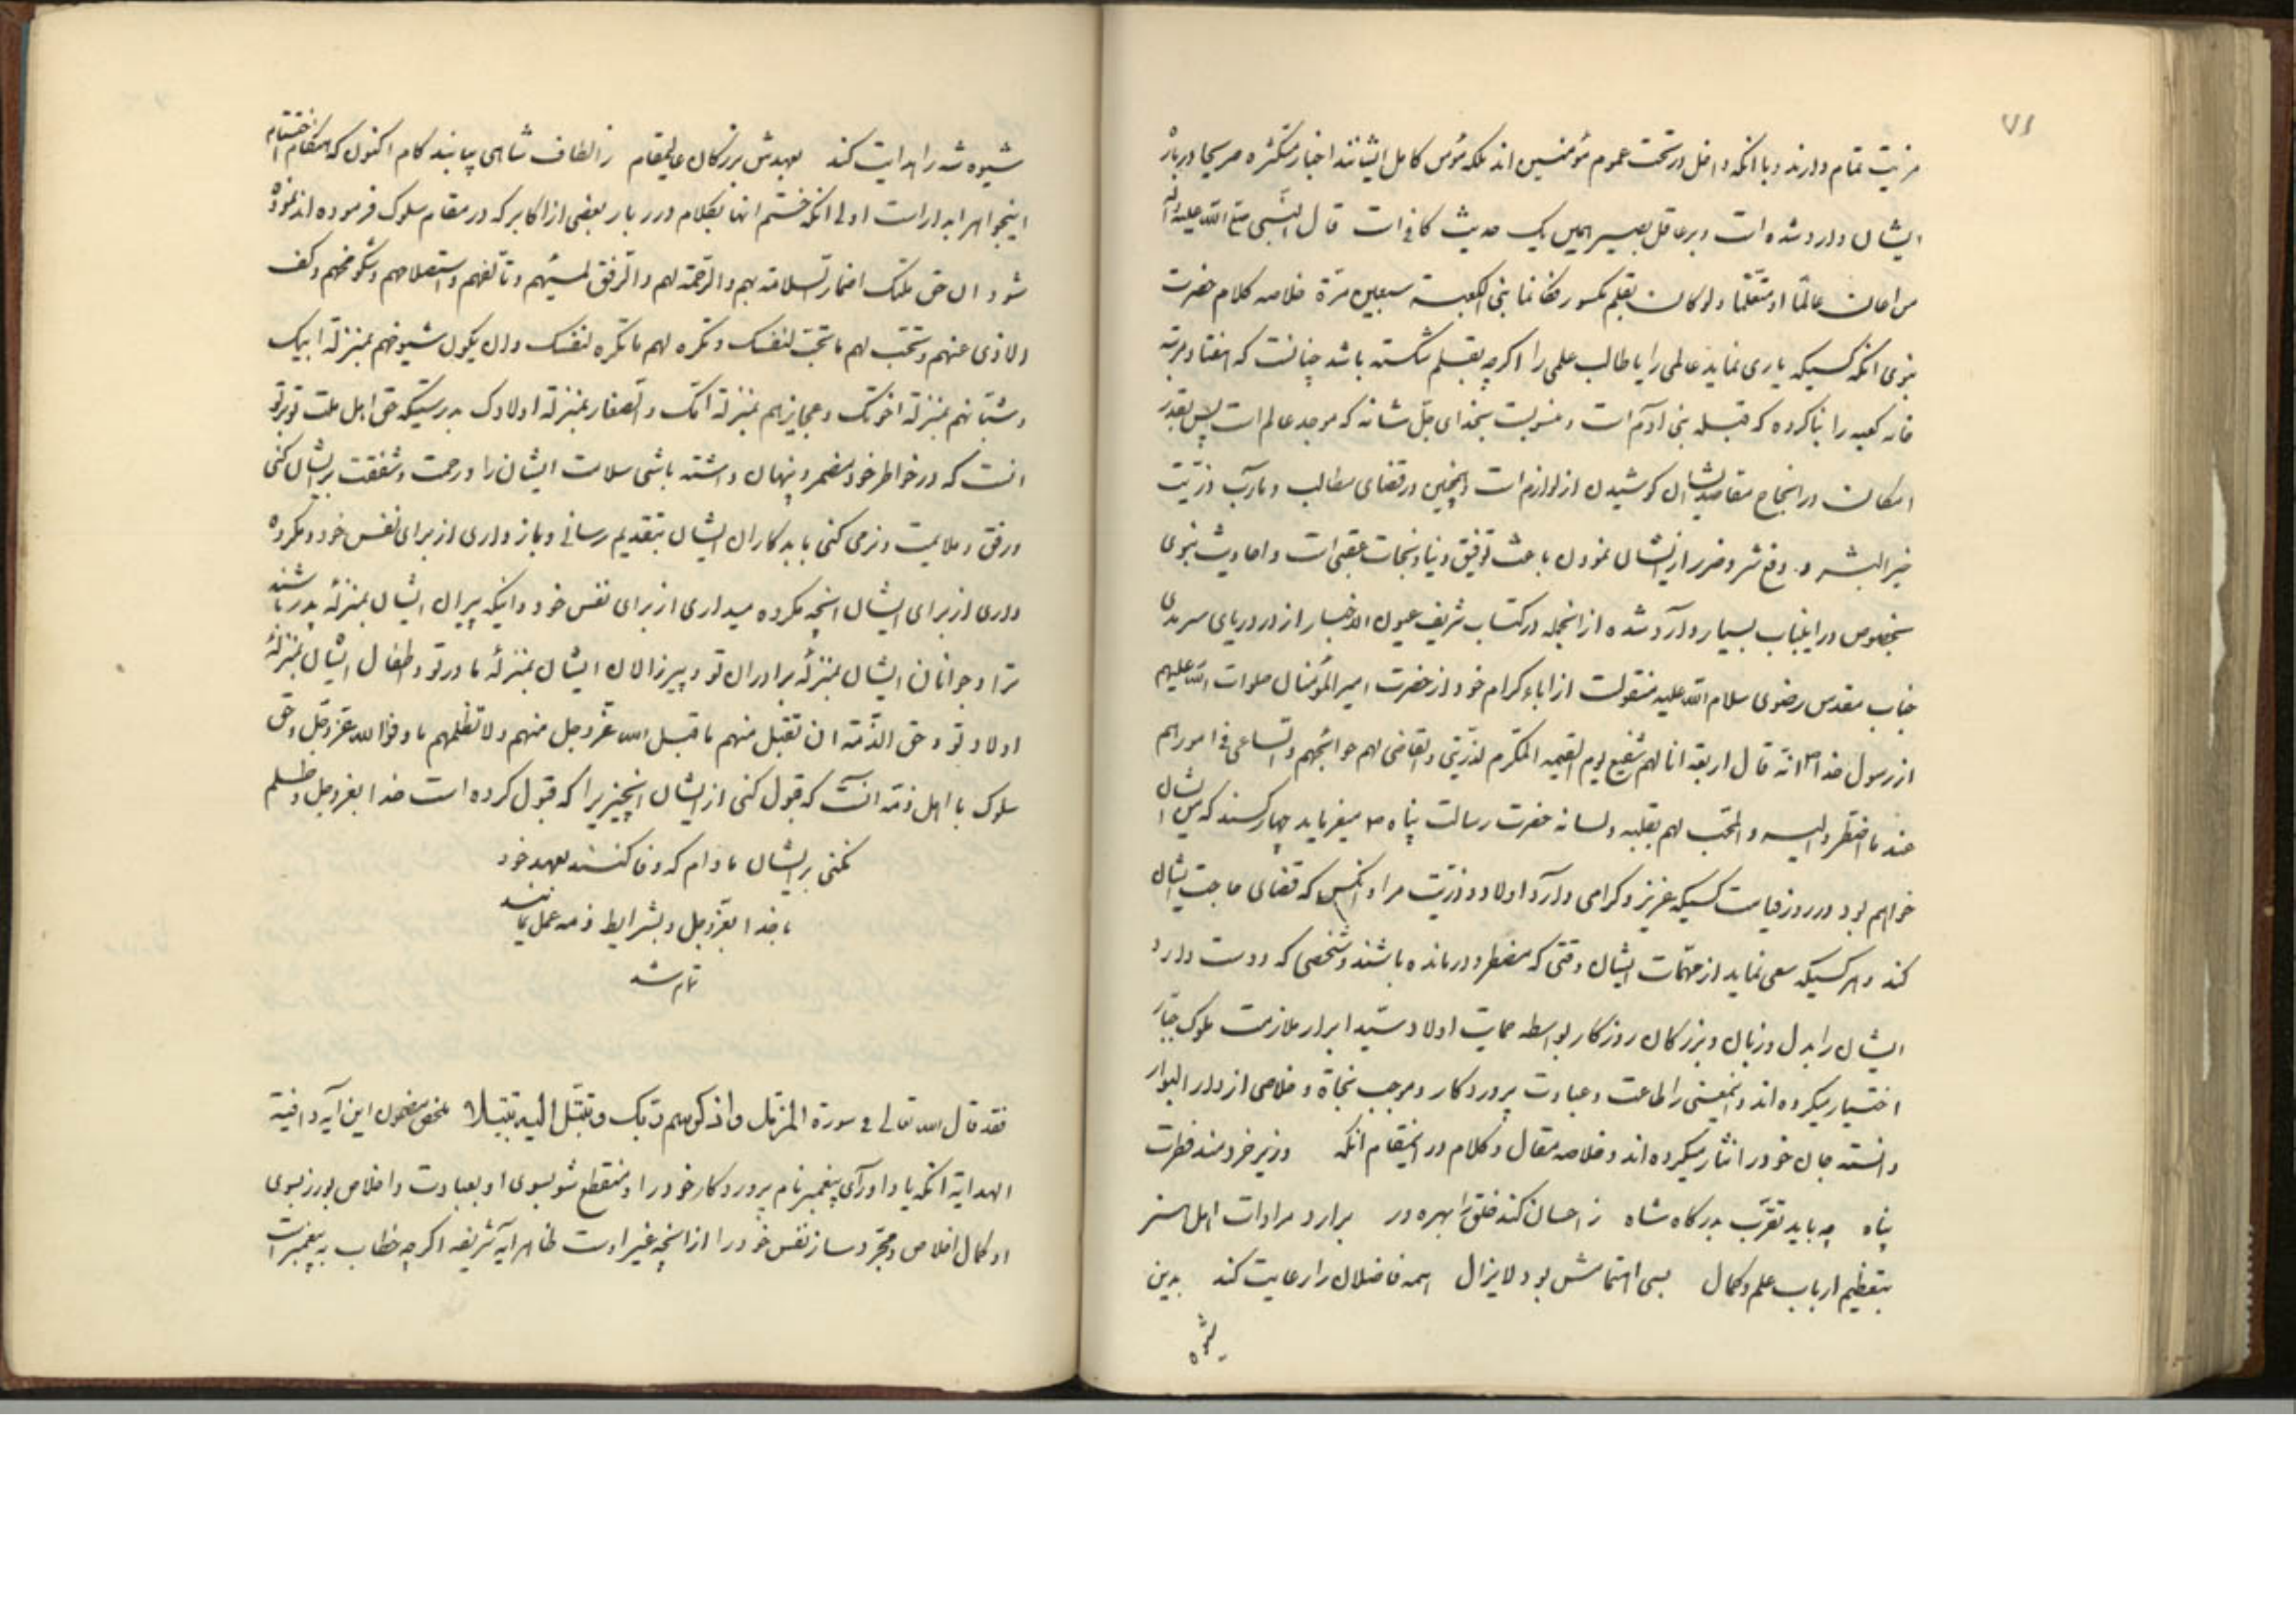 ۷۱
مزیت تمام دارند و با انکه داخل در تحت عموم مؤمنین اند بلکه مؤمن کامل ایشانند اخبار متکثره صریحا درباره
ایشان وارد شده است و بر عاقل بصیر همین یک حدیث کافی است قال النبی صلی الله علیه و اله
من اعان عالما او متعلما ولو کان بقلم مکسور فکانما بنی الکعبة سبعین مرة خلاصه کلام حضرت
نبوی انکه کسیکه یاری نماید عالمی را یا طالب علمی را اکرچه بقلم شکسته باشد چنانست که هفتاد مرتبه
خانه کعبه را بنا کرده که قبله بنی ادم است و منسوبست بخدای جل شانه که موجد عالم است پس بقدر
امکان در انجاح مقاصد ایشان کوشیدن از لوازم است و همچنین در قضای مطالب و مارب ذریت
خیر البشر و دفع شر و ضرر از ایشان نمودن باعث توفیق دنیا و نجات عقبی است و احادیث نبوی
بخصوص در اینباب بسیار وارد شده از انجمله در کتاب شریف عیون الاخبار از در دریای سرمدی
جناب مقدس رضوی سلام الله علیه منقولست از اباء کرام خود از حضرت امیر المؤمنان صلوات الله علیهم
از رسول خدا ص انه قال اربعة انا لهم شفیع یوم القیمه المکرم لذریتی و القاضی لهم حوائجهم و الساعی فی امورهم
عند ما اضطروا الیه و المحب لهم بقلبه و لسانه حضرت رسالت پناه ص میفرماید چهار کسند که من شفیع ایشان
خواهم بود در روز قیامت کسیکه عزیز و کرامی دارد اولاد و ذریت مرا و انکس که قضای حاجت ایشان
کند و هر کسیکه سعی نماید از مهمات ایشان وقتی که مضطر و درمانده باشند و شخصی که دوست دارد
ایشان را بدل و زبان و بزرکان روزکار بواسطه حمایت اولاد سید ابرار ملازمت ملوک جبار
اختیار میکرده اند و اینمعنی را طاعت و عبادت پروردکار و موجب نجاة و خلاصی از دار البوار
دانسته جان خود را نثار میکرده اند و خلاصه مقال و کلام در اینمقام انکه وزیر خردمند فطرت
پناه چه یابد تقرب بدرکاه شاه ز احسان کند خلق را بهره ور برارد مرادات اهل هنر
بتعظیم ارباب علم و کمال بسی اهتمامش بود لایزال همه فاضلان را رعایت کند بدین
شیوه
شیوه شه را هدایت کند بعهدش بزرکان عالیمقام ز الطاف شاهی بیابند کام اکنون که هنکام اختتام
اینجواهر ابدار است اولی انکه ختم انها بکلام درر بار بعضی از اکابر که در مقام سلوک فرموده اند نموده
شود ان حق ملتک اضمار السلامة بهم و الرحمة لهم و الرفق لمسیئهم و تالفهم و استصلاحهم و شکر محسنهم و کف
الاذی عنهم و تحب لهم ما تحب لنفسک و تکره لهم ما تکره لنفسک و ان یکون شیوخهم بمنزلة ابیک
و شبانهم بمنزلة اخوتک و عجایزهم بمنزلة امک و الصغار بمنزلة اولادک بدرستیکه حق اهل ملت تو بر تو
انست که در خاطر خود مضمر و پنهان داشته باشی سلامت ایشان را و رحمت و شفقت بر ایشان کنی
و رفق و ملایمت و نرمی کنی با بدکاران ایشان بتقدیم رسانی و باز داری از برای نفس خود و مکروه
داری از برای ایشان انچه مکروه میداری از برای نفس خود و اینکه پیران ایشان بمنزلۀ پدر باشند
ترا و جوانان ایشان بمنزلۀ برادران تو و پیرزالان ایشان بمنزلۀ مادر تو و طفال ایشان بمنزلۀ
اولاد تو و حق الذمة ان تقبل منهم ما قبل الله عز و جل منهم و لا تظلمهم ما وفوا لله عز و جل و حق
سلوک با اهل ذمه انست که قبول کنی از ایشان انچیزیرا که قبول کرده است خدا بعز و جل و ظلم
نکنی بر ایشان مادام که وفا کنند بعهد خود
با خدا بعز و جل و بشرایط ذمه عمل نمایند
تمام شد
فقد قال الله تعالی فی سورة المزمل واذکر اسم ربک وتبتل الیه تبتیلا ملخص مضمون این آیه وافیة
الهدایه انکه یاد اور ای پیغمبر نام پروردکار خود را و منقطع شو بسوی او بعبادت و اخلاص بورز بسوی
او کمال اخلاص و مجرد ساز نفس خود را از انچه غیر اوست ظاهر ایه شریفه اکرچه خطاب به پیغمبر است